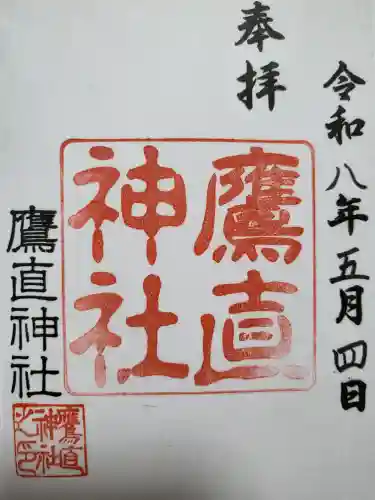 令和八年五月四日
奉拝
鷹直
神社
鷹直神社
鷹直
神社
之印